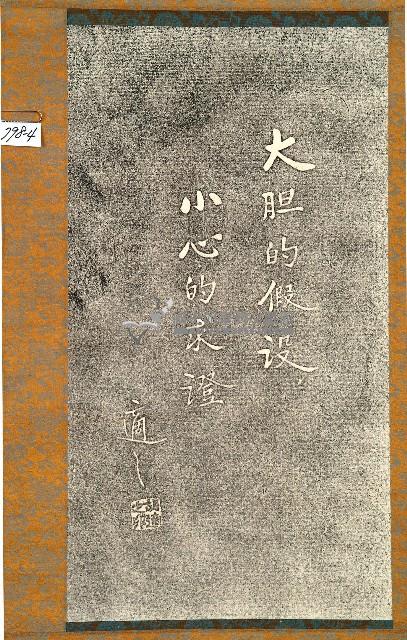 大胆的假设，
小心的求證
適之
798-4